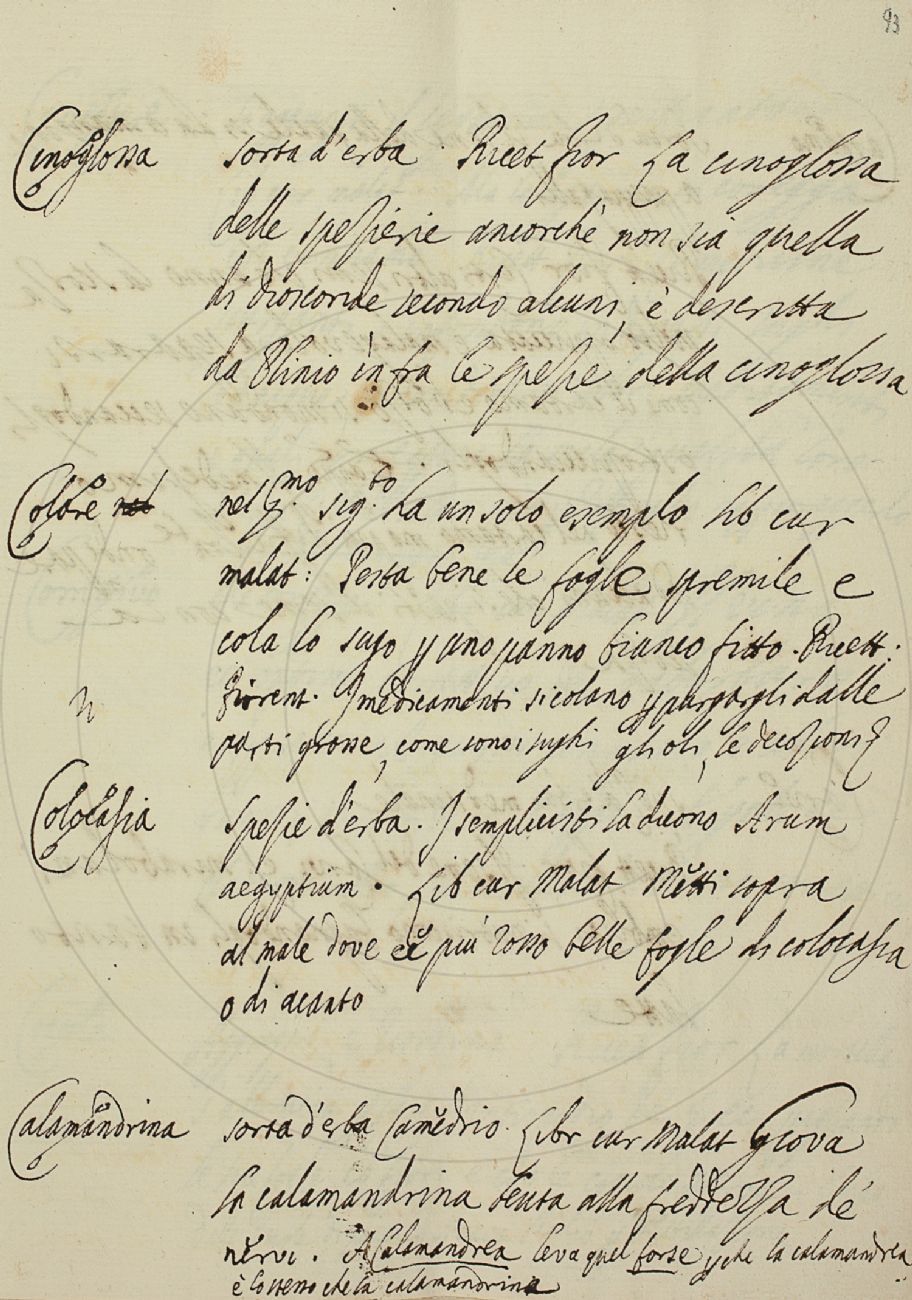 93
Cinoglossa sorta d'erba. Ricet fior La cinoglossa
delle spezierie ancorchè non sia quella
di dioscoride secondo alcuni, è descritta
da Plinio infra le spezie della cinoglossa
Colare nel nel p.mo sig.to ha un solo esemplo Lib cur
malat: Pesta bene le fogle spremile e
cola lo sugo p uno panno bianco fitto. Ricett:
fiorent. I medicamenti si colano p purgargli dalle
parti grosse, come sono i sughi gli oli, le decozioni
Colocasia Spezie d'erba. I semplicisti la dicono Arum
aegyptium. Lib cur Malat Metti sopra
al male dove è più rosso delle fogle di colocasia
o di acanto
Calamandrina sorta d'erba Camedrio. Libr cur Malat Giova
la calamandrina beuta alla freddezza de'
nervi. A Calamandrea leva quel forse p che la calamandrea
è lo stesso che la calamandrina